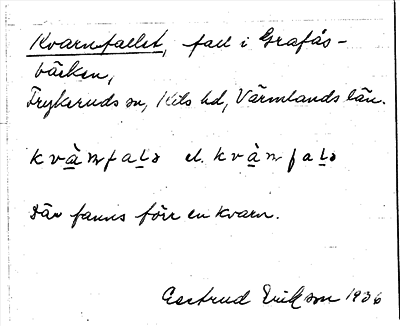 Kvarnfallet, fall i Grafås-
bäcken,
Frykeruds sn, Kils hd, Värmlands län.
kvàɱfalə el. kvàɱfalə
Där fanns förr en kvarn.
Gertrud Erikson 1936